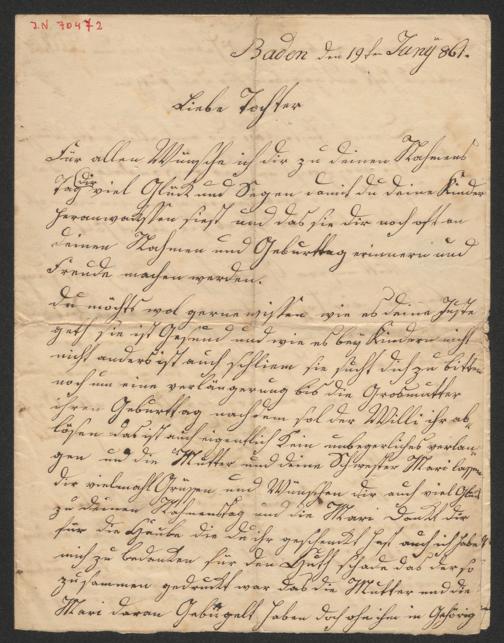 I.N. 70472
Baden den 19ten Juny 861.
Liebe Tochter
Für allen Wünsche ich dir zu deinen Nahmens
Tag dir viel Glück und Segen damit du deine Kinder
heranwachsen siest und das sie dir noch oft an
deinen Nahmen und Geburttag erinnern und
Freude machen werden.
Du möchts wol gerne wissen wie es deine
geth sie ist Gesund und wie es bey Kindern nicht
nicht anders ist auch schlim sie sucht dich zu bitten
noch um eine verlängerung bis die Grosmutter
ihren Geburttag nach dem sol der Willi ihr ab-
lösen das ist auch eigentlich kein unbegerliches verlan
gen und die Mutter und deine Schwester Mari lassen
dir vielmahl Grüssen und Wünschen dir auch viel Glück
zu deinen Nahmenstag und die Mari Dankt dir
für die Haube die du ihr geschenkt hast auch ich habe
mich zu bedanken für den Huth schade das der so
zusammen gedrukt war das die Mutter und die
Mari daran Gebügelt haben doch ohn ihm in Gehörig